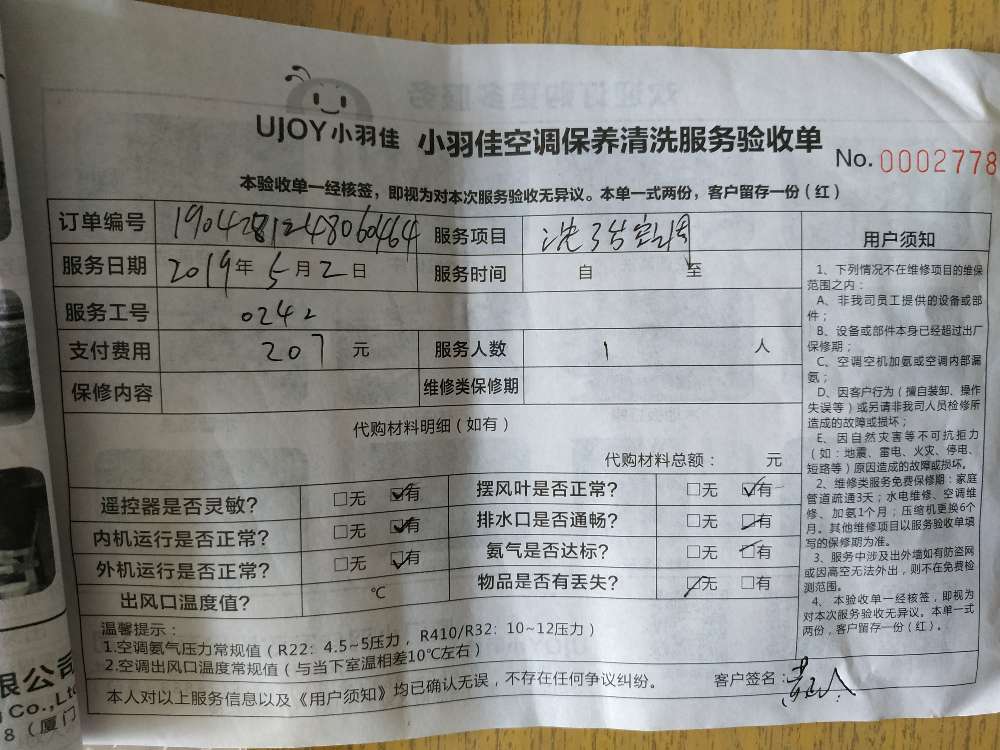 UJOY小羽佳 小羽佳空调保养清洗服务验收单
No. 0002778
本验收单一经核签，即视为对本次服务验收无异议。本单一式两份，客户留存一份（红）
订单编号 19042812248060464 服务项目 洗3台空调
服务日期 2019年5月2日 服务时间 自 至
服务工号 0242
支付费用 207 元 服务人数 1 人
保修内容 维修类保修期
代购材料明细（如有）
代购材料总额： 元
遥控器是否灵敏? □无 ☑有 摆风叶是否正常? □无 ☑有
内机运行是否正常? □无 ☑有 排水口是否通畅? □无 ☑有
外机运行是否正常? □无 ☑有 氨气是否达标? □无 ☑有
出风口温度值? ℃ 物品是否有丢失? ☑无 □有
温馨提示：
1.空调氨气压力常规值（R22：4.5~5压力，R410/R32：10~12压力）
2.空调出风口温度常规值（与当下室温相差10℃左右）
本人对以上服务信息以及《用户须知》均已确认无误，不存在任何争议纠纷。 客户签名：
用户须知
1、下列情况不在维修项目的维保
范围之内：
A、非我司员工提供的设备或部
件；
B、设备或部件本身已经超过出厂
保修期；
C、空调空机加氨或空调内部漏
氨；
D、因客户行为（擅自装卸、操作
失误等）或另请非我司人员检修所
造成的故障或损坏；
E、因自然灾害等不可抗拒力
（如：地震、雷电、火灾、停电、
短路等）原因造成的故障或损坏。
2、维修类服务免费保修期：家庭
管道疏通3天；水电维修、空调维
修、加氨1个月；压缩机更换6个
月。其他维修项目以服务验收单填
写的保修期为准。
3、服务中涉及出外墙如有防盗网
或因高空无法外出，则不在免费检
测范围。
4、本验收单一经核签，即视为
对本次服务验收无异议。本单一式
两份，客户留存一份（红）。
限公司
Co.,Ltd
8（厦门